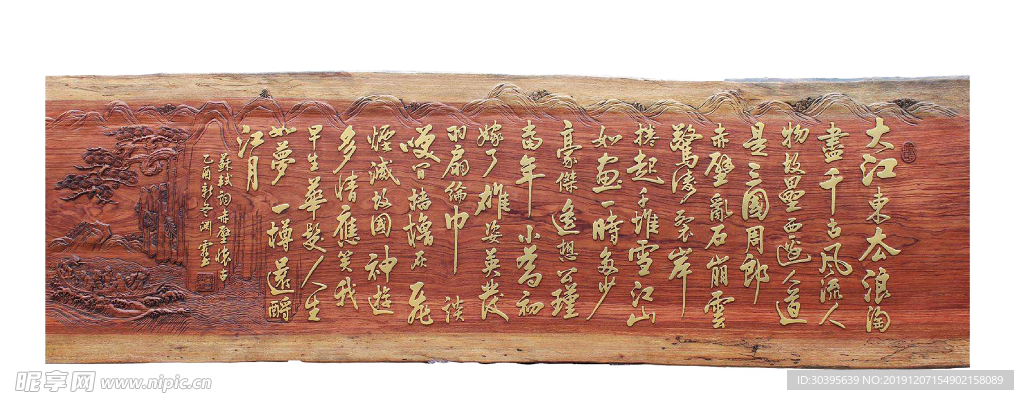 大江東去浪淘
盡千古風流人
物故壘西邊人道
是三國周郎
赤壁亂石崩雲
驚濤裂岸
捲起千堆雪江山
如畫一時多少
豪傑遙想公瑾
當年小喬初
嫁了雄姿英發
羽扇綸巾談
笑間檣櫓灰飛
煙滅故國神遊
多情應笑我
早生華髮人生
如夢一樽還酹
江月
蘇軾詞赤壁懷古
乙酉
昵享网 www.nipic.cn
ID:30395639 NO:20191207154902158089